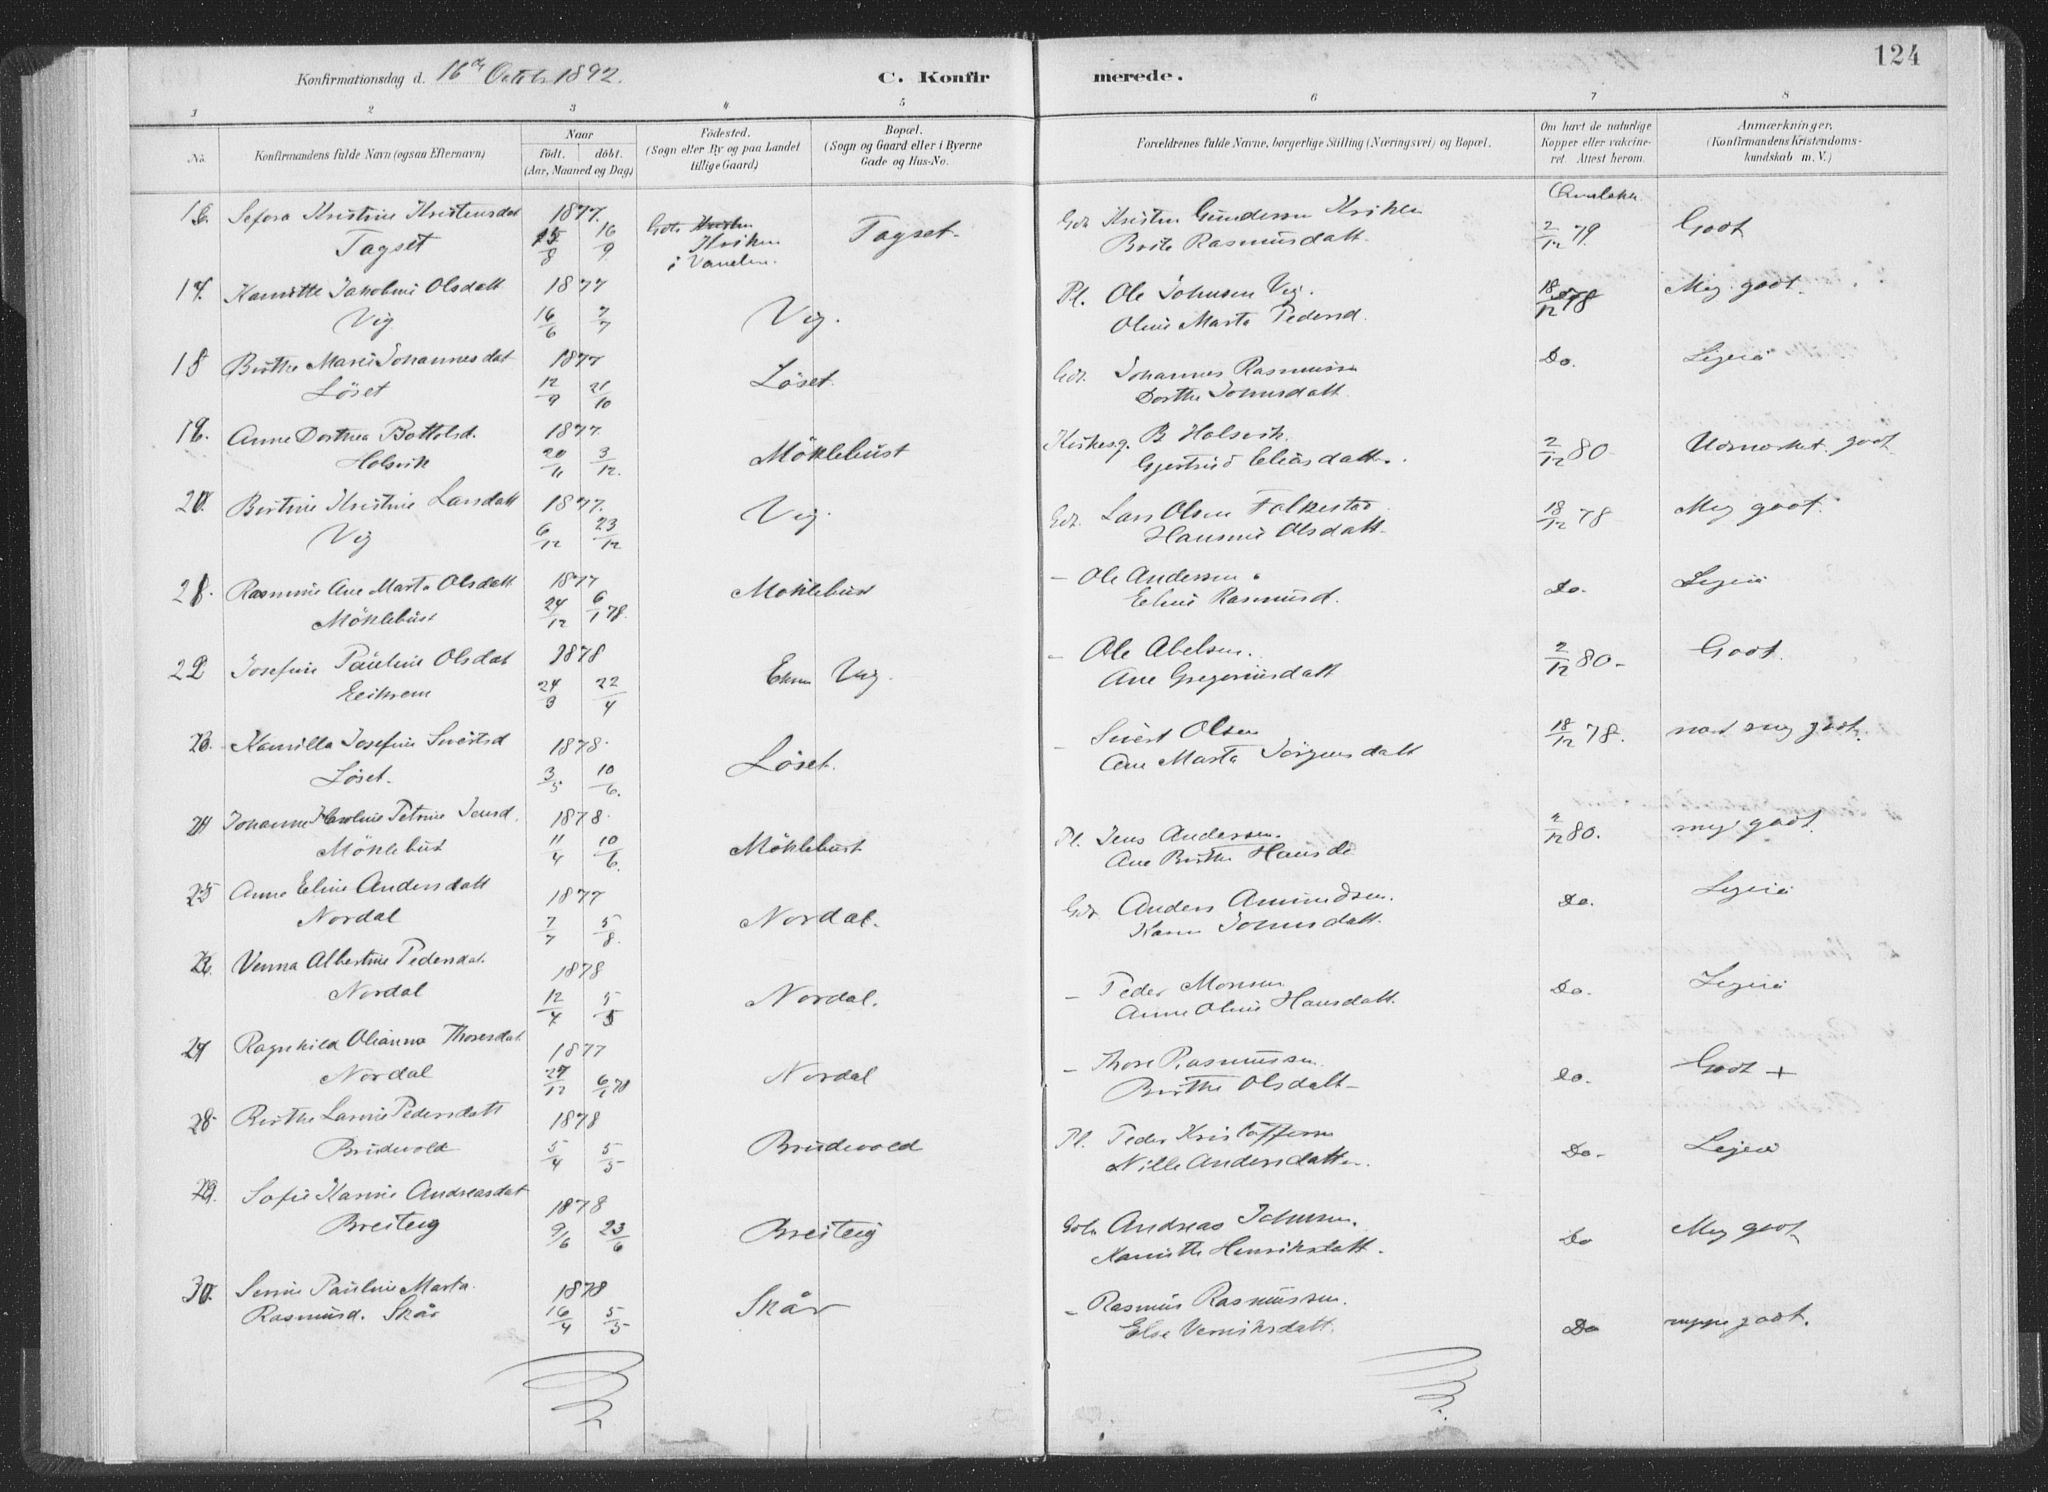 124
Konfirmationsdag d. 16de Octob. 1892.
C. Konfirmerede.
1 2 3 4 5 6 7 8
No.
Konfirmandens fulde Navn (ogsaa Efternavn)
Naar
födt. döbt.
(Aar, Maaned og Dag)
Födested.
(Sogn eller By og paa Landet tillige Gaard)
Bopæl.
(Sogn og Gaard eller i Byerne Gade og Hus-No.
Forældrenes fulde Navne, borgerlige Stilling (Næringsvei) og Bopæl.
Om havt de naturlige Kopper eller vakcineret. Attest herom.
Anmærkninger.
(Konfirmandens Kristendomskundskab m. V.)
16. Sefora Kristine Kristensdat 1877.
Tagset 15/8 16/9 Kriken i Vanelven. Tagset.
Gdr. Kristen Gundersen Kriken
Brite Rasmusdatt. 2/12 79. Godt
17. Hanitte Jakobine Olsdatt 1877
Vig 16/6 7/7 Vig.
Pl. Ole Johnsen Vig.
Oline Marta Pedersd. 18/12 78 Meg. godt.
18 Birthe Marie Johannesdat 1877
Löset 12/9 21/10 Löset.
Gdr. Johannes Rasmussen
Dorthe Johnsdatt. Do. Ligeså
19. Anne Dorthea Bottolsd. 1877.
Holsvik 20/11 3/12. Möklebust
Kirkesg. B Holsvik.
Gjertrud Eliasdatt. 2/12 80 Udmærket godt
20. Bertine Kristine Larsdatt 1877.
Vig 6/12 23/12 Vig.
Gdr. Lars Olsen Falkestad
Hansine Olsdatt. 18/12 78 Meg godt.
21. Rasmine Ane Marta Olsdatt 1877
Möklebust 24/12 6/1 78. Möklebust
- Ole Andersen
Eline Rasmusd. Do. Ligeså
22 Josefine Pauline Olsdat 1878
Eeikrem 24/3 22/4 Vig.
- Ole Abelsen.
Ane Gregoriusdatt 2/12 80- Godt.
23. Kamilla Josefine Sivertsd 1878.
Löset. 3/5 10/6. Löset.
- Sivert Olsen
Ane Marta Jörgensdatt 18/12 78. næst meg godt.
24 Johanne Karoline Petrine Jensd. 1878.
Möklebust 11/4 10/6. Möklebust
Pl. Jens Andersen.
Ane Birthe Hansd. 2/12 80. meg godt.
25 Anne Eline Andersdatt 1877
Nordal 7/7 5/8. Nordal.
Gdr Anders Amundsen.
Karen Johnsdatt. Do. Ligeså
26. Venna Albertine Pedersdat. 1878
Nordal 12/4 5/5 Nordal.
- Peder Monsen
Anne Oline Hansdatt. Do. Ligeså
27 Ragnhild Olianna Thoresdat 1877
Nordal 27/12 6/1 78 Nordal
- Thore Rasmussen.
Birthe Olsdatt- Do. Godt +
28. Birthe Larine Pedersdatt 1878
Brudevold 5/4 5/5 Brudevold
Pl. Peder Kristoffersen
Nille Andersdatter. Do. Ligeså
29. Sofie Karine Andreasdat 1878
Breiteig 9/6 23/6 Breiteig
Gdr. Andreas Johnsen.
Hanitte Henriksdatt. Do Meg godt
30. Serine Pauline Marta 1878
Rasmusd. Skår 16/4 5/5 Skår
- Rasmus Rasmussen.
Else Verniksdatt. Do neppe godt.